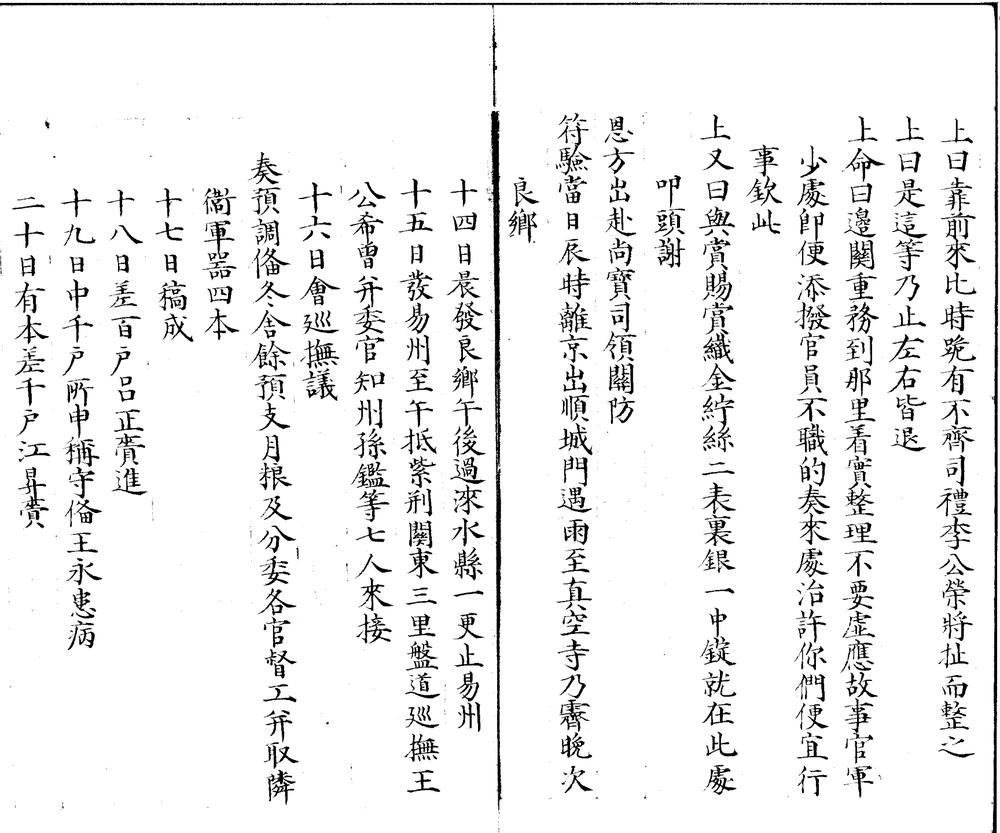 上曰靠前來比時跪有不齊司禮李公榮將扯而整之
上曰是這等乃止左右皆退
上命曰邊關重務到那里着實整理不要虛應故事官軍
少處即便添撥官員不職的奏來處治許你們便宜行
事欽此
上又曰與賞賜賞織金紵絲二表裏銀一中錠就在此處
叩頭謝
恩方出赴尚寶司領關防
符驗當日辰時離京出順城門遇雨至真空寺乃霽晚次
良鄉
十四日晨發良鄉午後過淶水縣一更止易州
十五日發易州至午抵紫荆關東三里盤道廵撫王
公希曾并委官知州孫鑑等七人來接
十六日會廵撫議
奏預調俻冬舍餘預支月粮及分委各官督工并取隣
衞軍器四本
十七日稿成
十八日差百户吕正賫進
十九日中千户所申稱守俻王永患病
二十日有本差千户江昇賫